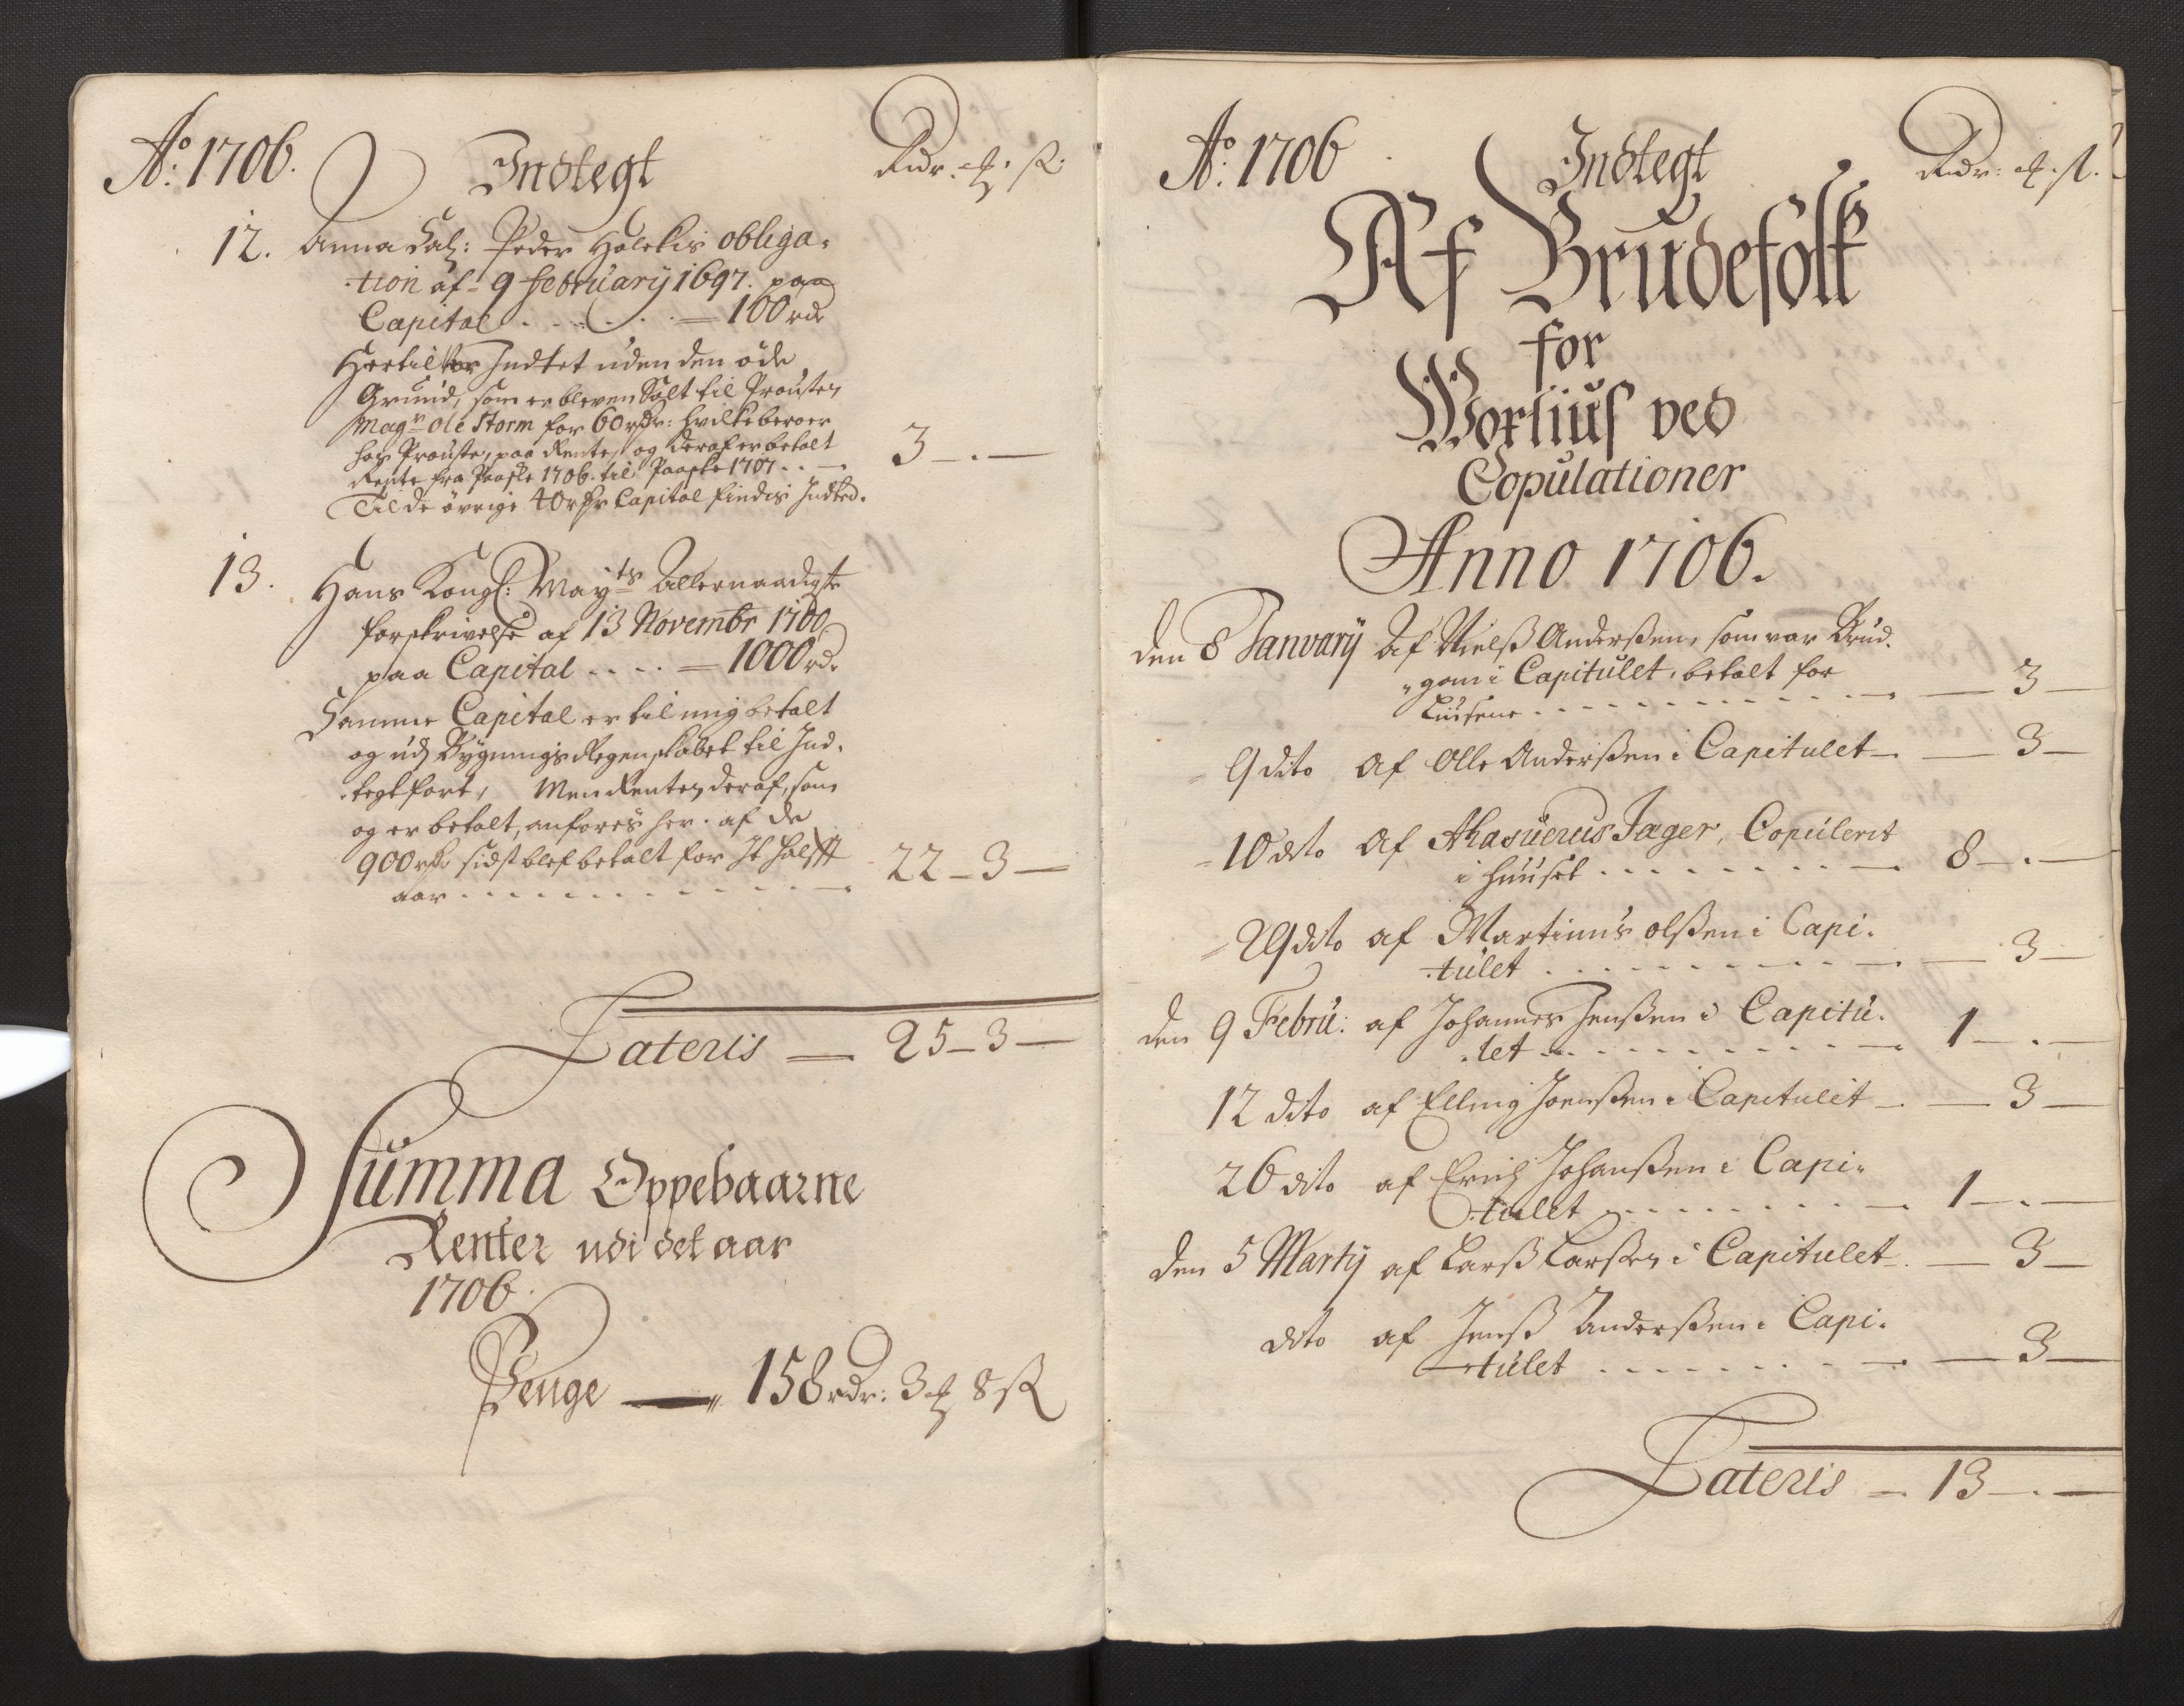 Ao: 1706.
Indtegt
Rdr. ꝶ. ß.
12. Anna Sal: Peder Holekis obliga-
tion af 9 February 1697. paa
Capital . . . . . = 100 rdr
Hertil er Indtet uden den öde
Grund, som er bleven Solt til Prousten
Magr Ole Storm for 60 rdr: hvilke beroer
hos Prousten, paa Rente, og deraf er betalt
Rente fra Paaske 1706. til Paaske 1707 . . — 3 — . —
Til de övrige 40 rdr Capital findis Indted.
13. Hans Kongl: Mayts Allernaadigste
forskrivelse af 13 Novembr 1700
paa Capital . . . . = 1000 rdr
Samme Capital er til mig betalt
og udj Bygnings Regenskabet til Ind-
tegt fört, Men Renten deraf, som
og er betalt, anföres her. af de
900 rdr sidst blef betalt for It halfft
aar . . . . . . . . . . . . — 22 — 3 —
Lateris — 25 — 3 —
Summa Oppebaarne
Renter udi det aar
1706.
Penge — 158 rdr: 3 ꝶ 8 ß
Ao: 1706
Indtegt
Rdr: ꝶ. ß.
Af Brudefolk
for
Voxliüs ved
Copulationer
Anno 1706.
den 8 January Af Nielß Anderßen, som var Brud-
gom i Capitulet, betalt for
Liusene . . . . . . . . . . . . — — 3 —
9 dito af Olle Anderßen i Capitulet — — 3 —
10 dito af Ahasuerus Jæger, Copulerit
i Huuset . . . . . . . . — 8 — . —
29 dito af Martinus Olßen i Capi-
tulet . . . . . . . . . . — — 3 —
den 9 Febru: af Johannes Jenßen i Capitu-
let . . . . . . . . . . — 1 — . —
12 dito af Elling Joenßen i Capitulet — — 3 —
26 dito af Erich Johanßen i Capi-
tulet . . . . . . . . . — 1 — . —
den 5 Martij af Larß Larßen i Capitulet — — 3 —
dito af Jenß Anderßen i Capi-
tulet . . . . . . . . — — 3 —
Lateris — 13 — . —